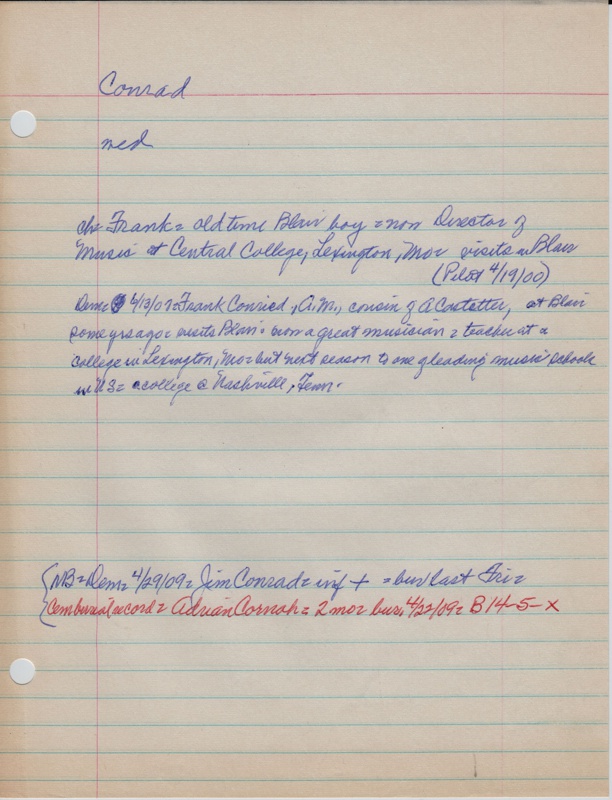 Conrad
med
ch= Frank= old time Blair boy = now Director of
Music at Central College, Lexington, Mo= visits in Blair
(Pilot 4/19/00)
Dem= 6/13/07= Frank Conried, A.M., cousin of A Castetter, at Blair
some yrs ago= visits Blair= now a great musician = teacher at a
college in Lexington, Mo= but next season to one of leading music schools
in US= a college @ Nashville, Tenn.
NB= Dem= 4/29/09= Jim Conrad= inf + = bur last Fri=
Cem burial record= Adrian Cornah= 2 mo= bur. 4/22/09= B 14-5-X